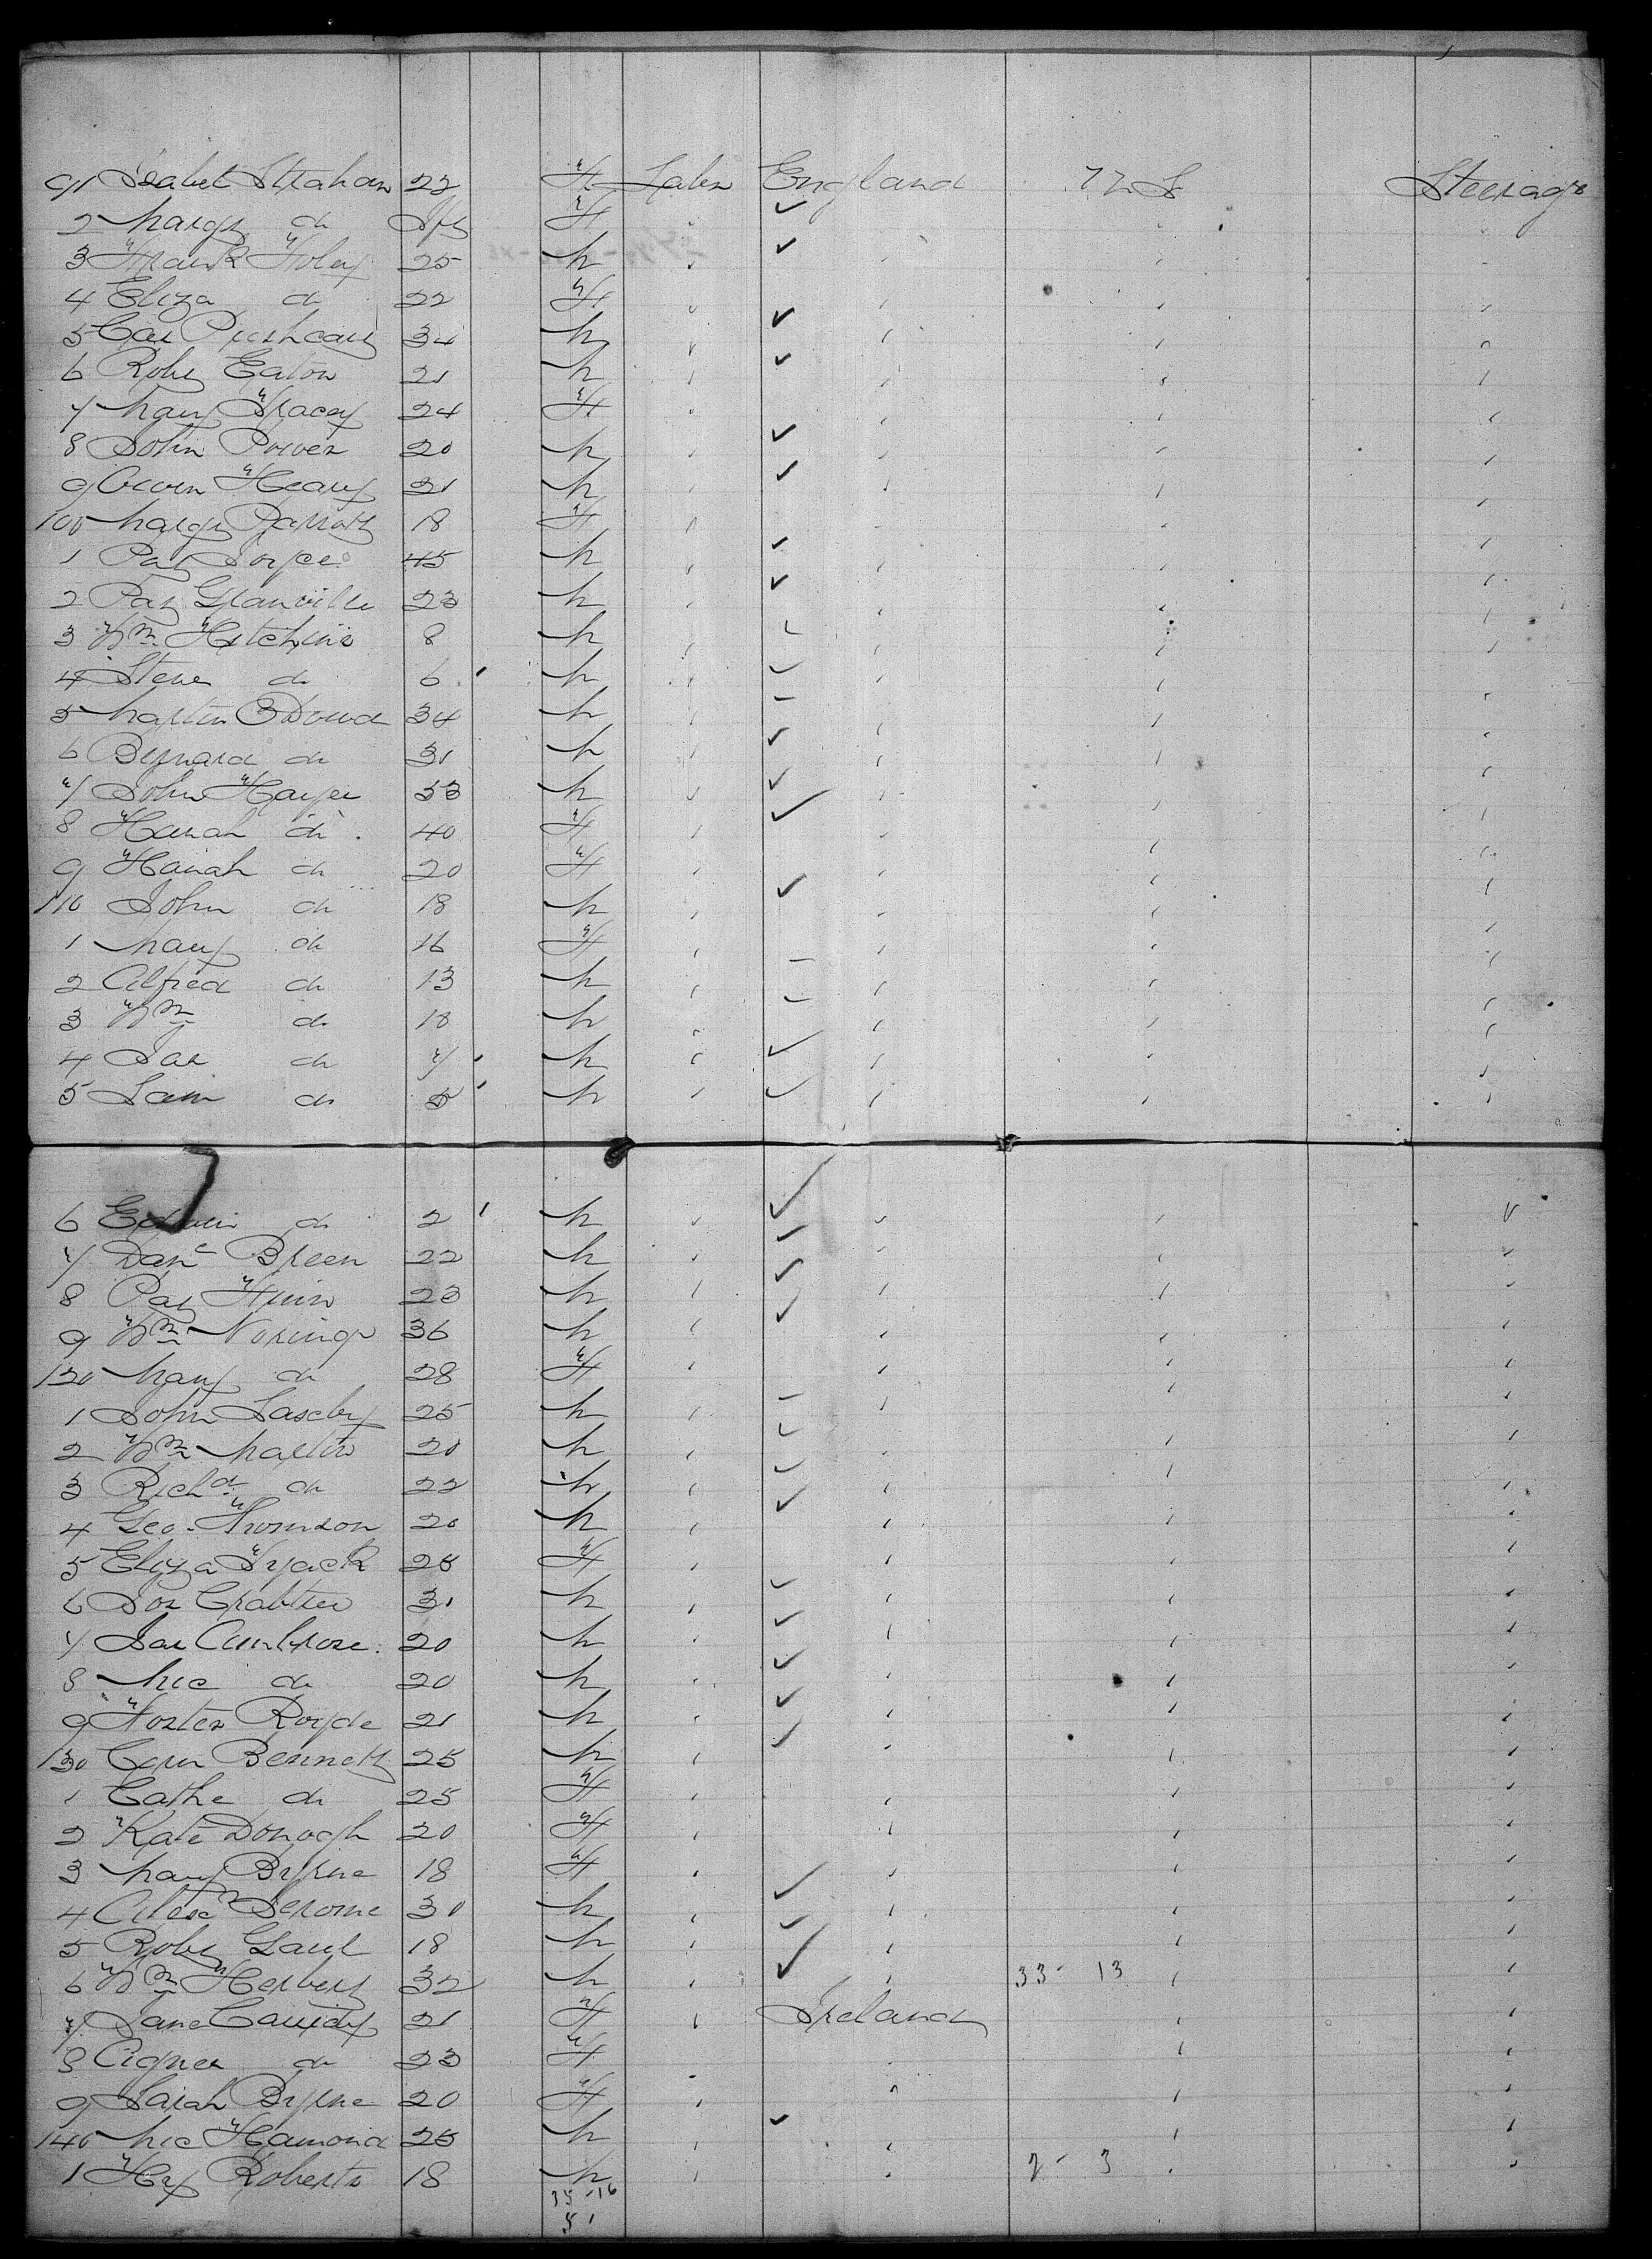 91 Isabel Strahan 22 F Labr England U S Steerage
2 Margt do F
3 Frank Foley 25 M
4 Eliza do 22 F
5 34 M
6 Robt Eaton 21 M
7 Mary Tracey 24 F
8 John Power 20 M
9 Owen Heany 21 M
100 Margt Parrott 18 F
1 Pat Joyce 45 M
2 Pat Granville 23 M
3 Wm Hutchins 8 M
4 Steve do 6 M
5 Martin O'Dowd 34 M
6 Bernard do 31 M
7 John 53 M
8 Hanah do 40 F
9 Hanah do 20 F
110 John do 18 M
1 Mary do 16 F
2 Alfred do 13 M
3 Wm do 18 M
4 Jas do 7 M
5 Sam do 5 M
6 Edwin do 2 M
7 Danl Breen 22 M
8 Pat 23 M
9 Wm 36 M
120 Mary do 28 F
1 John 25 M
2 Wm Martin 20 M
3 Richd do 22 M
4 Geo. 20 M
5 Eliza 25 F
6 Jos Crabtree 31 M
7 Jas Ambrose 20 M
8 Mic do 20 M
9 Foster Royde 21 M
130 Corn Bennett 25 M
1 Cathe do 25 F
2 Kate Donogh 20 F
3 Mary Byrne 18 F
4 Alexr Jerome 30 M
5 Robt Gaul 18 M
6 Wm Herbert 32 M 33 - 13
7 Jane Cassidy 21 F Ireland
8 Agnes do 23 F
9 Sarah Byrne 20 F
140 Mic Hamond 25 M
1 Hy Roberts 18 M 2 - 3
35 - 16
51